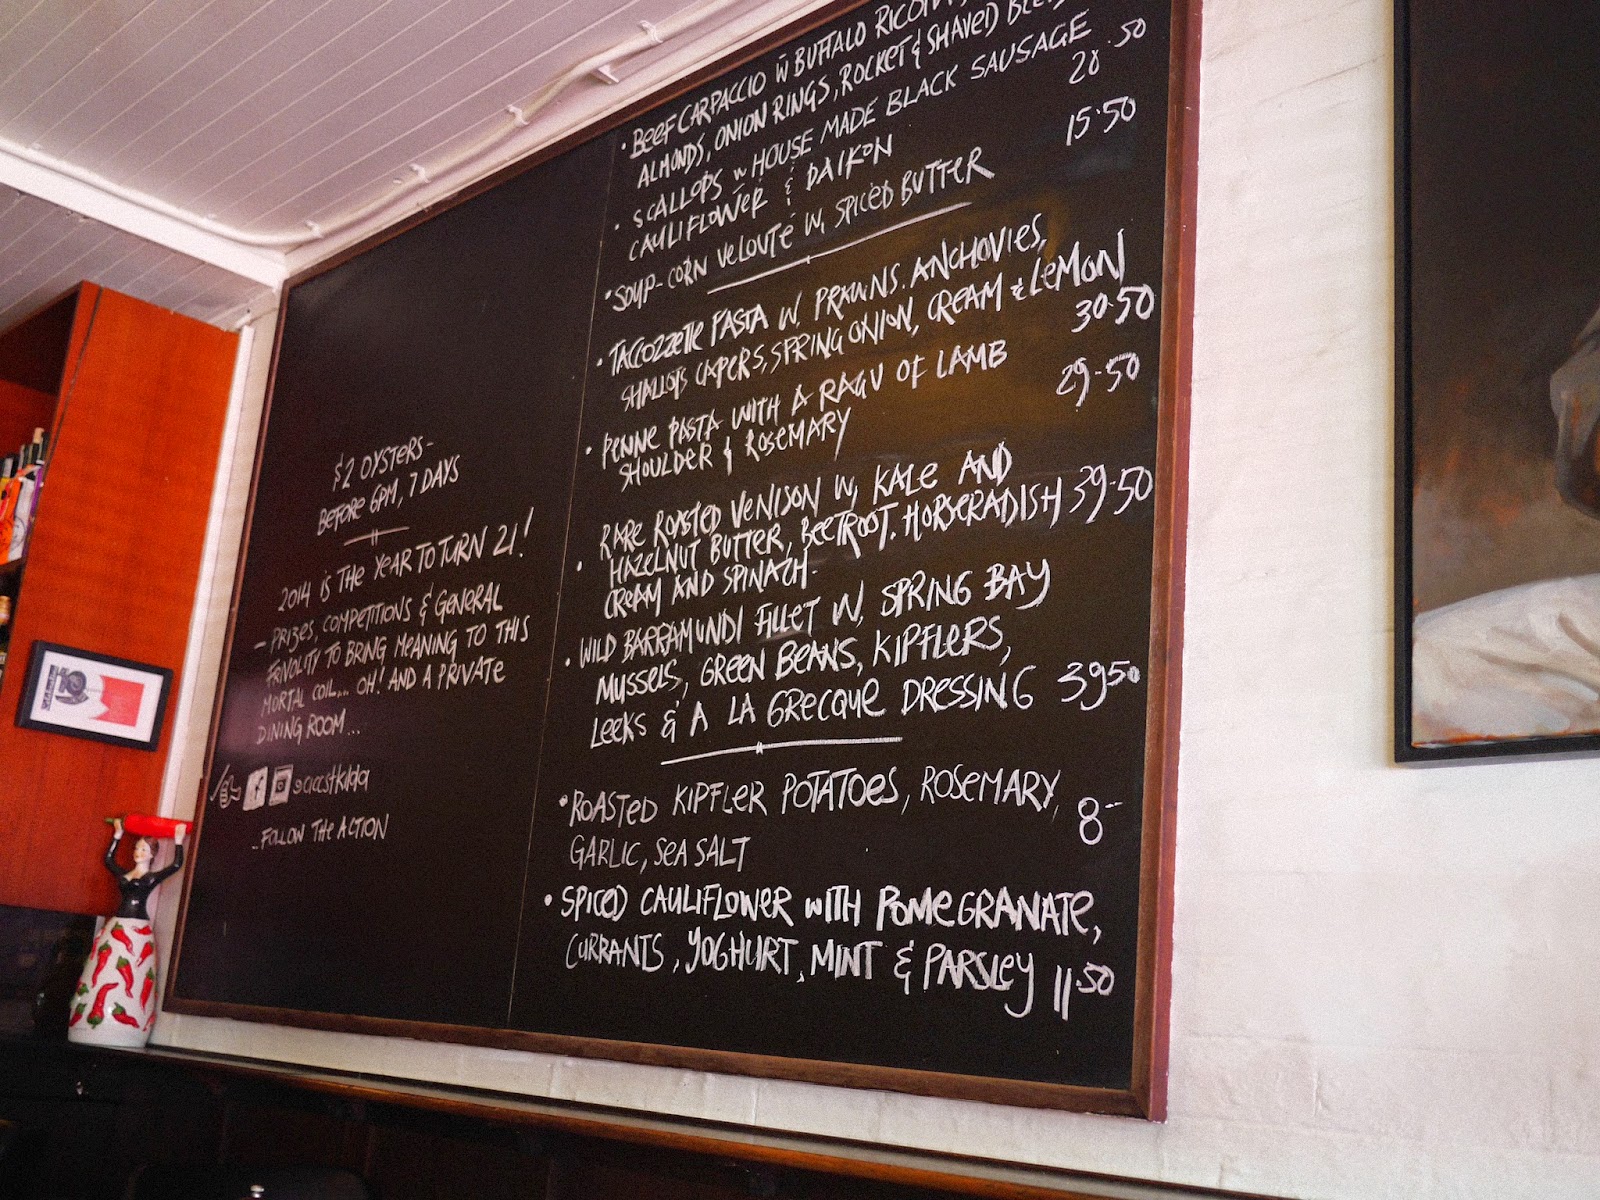 $2 OYSTERS -
BEFORE 6PM, 7 DAYS
2014 IS THE YEAR TO TURN 21!
- PRIZES, COMPETITIONS & GENERAL
FRIVOLITY TO BRING MEANING TO THIS
MORTAL COIL... OH! AND A PRIVATE
DINING ROOM...
...FOLLOW THE ACTION
• BEEF CARPACCIO W BUFFALO
ALMONDS, ONION RINGS, ROCKET & SHAVED
• SCALLOPS W HOUSE MADE BLACK SAUSAGE
CAULIFLOWER & DAIKON 20.50
• SOUP - CORN VELOUTÉ W, SPICED BUTTER 15.50
• TACCOZZETTE PASTA W, PRAWNS. ANCHOVIES,
SHALLOTS CAPERS, SPRING ONION, CREAM & LEMON
30.50
• PENNE PASTA WITH A RAGU OF LAMB
SHOULDER & ROSEMARY 29-50
• RARE ROASTED VENISON W, KALE AND
HAZELNUT BUTTER, BEETROOT. HORSERADISH 39-50
CREAM AND SPINACH.
• WILD BARRAMUNDI FILLET W, SPRING BAY
MUSSELS, GREEN BEANS, KIPFLERS,
LEEKS & A LA GRECQUE DRESSING 39 50
• ROASTED KIPFLER POTATOES, ROSEMARY,
GARLIC, SEA SALT 8-
• SPICED CAULIFLOWER WITH POMEGRANATE,
CURRANTS, YOGHURT, MINT & PARSLEY 11.50